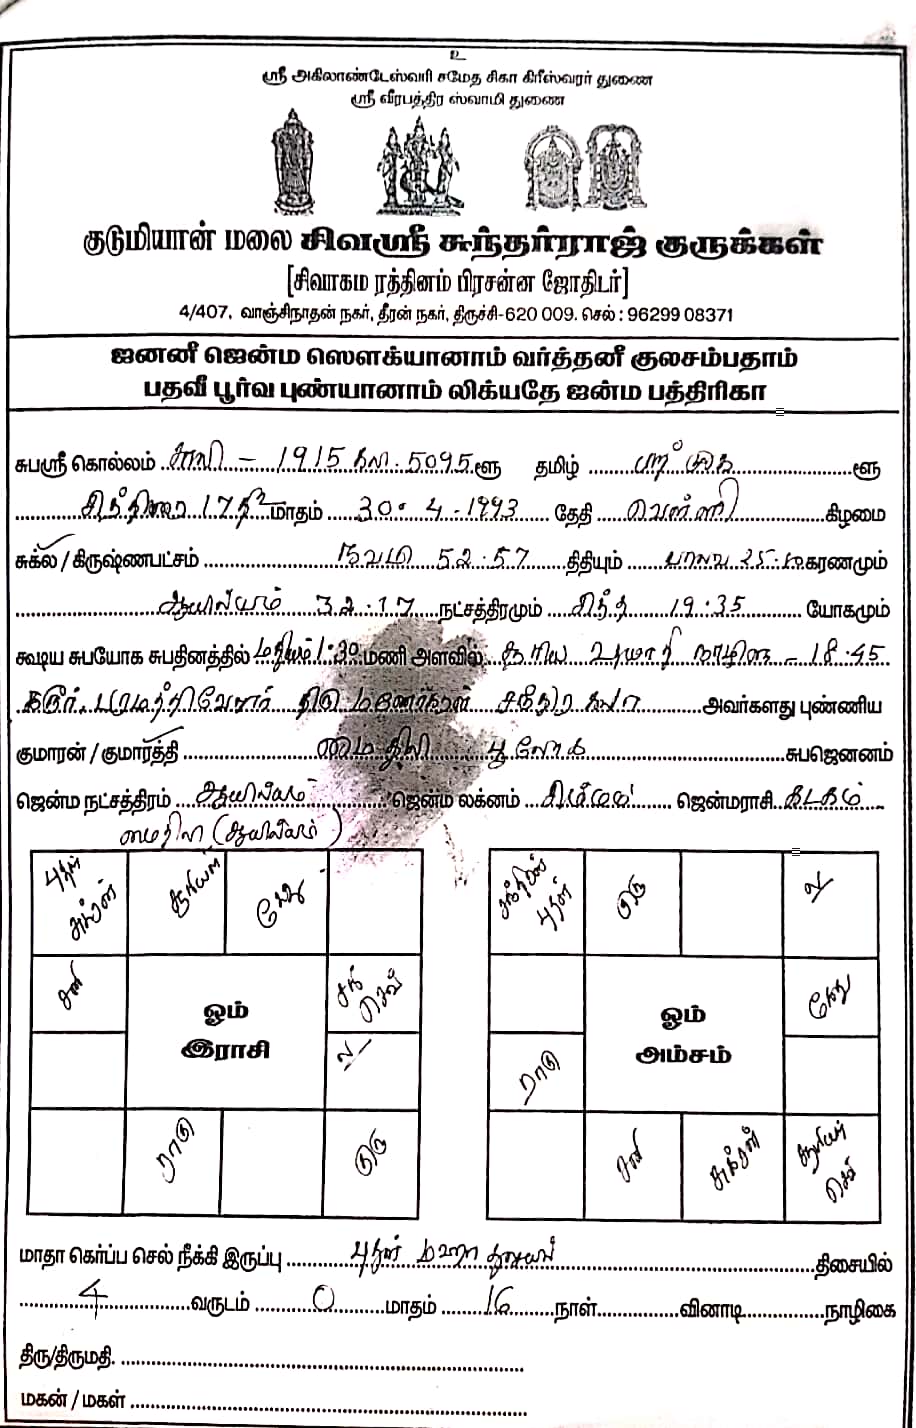 உ
ஸ்ரீ அகிலாண்டேஸ்வரி சமேத சிகா கிரீஸ்வரர் துணை
ஸ்ரீ வீரபத்திர ஸ்வாமி துணை
குடுமியான் மலை சிவஸ்ரீ சுந்தர்ராஜ் குருக்கள்
[சிவாகம ரத்தினம் பிரசன்ன ஜோதிடர்]
4/407, வாஞ்சிநாதன் நகர், தீரன் நகர், திருச்சி-620 009. செல் : 96299 08371
ஜனனீ ஜென்ம ஸௌக்யானாம் வர்த்தனீ குலசம்பதாம்
பதவீ பூர்வ புண்யானாம் லிக்யதே ஜன்ம பத்திரிகா
சுபஸ்ரீ கொல்லம் சாலி - 1915 கலி. 5095 ளு தமிழ் ளு
சித்திரை 17 தி மாதம் 30.4.1993 தேதி வெள்ளி கிழமை
சுக்ல / கிருஷ்ணபட்சம் நவமி 52.57 திதியும் பாலவ கரணமும்
ஆயில்யம் 32.17 நட்சத்திரமும் 19.35 யோகமும்
கூடிய சுபயோக சுபதினத்தில் மதியம் 1.30 மணி அளவில் சூரிய உதயாதி நாழிகை - 18.45
கரூர். திரு மனோகரன் சந்திரகலா அவர்களது புண்ணிய
குமாரன் / குமார்த்தி மைதிலி பூலோக சுபஜெனனம்
ஜென்ம நட்சத்திரம் ஆயில்யம் ஜென்ம லக்னம் சிம்மம் ஜென்மராசி கடகம்
மைதிலி (ஆயில்யம்)
புதன் சுக்ரன் சூரியன் கேது
சனி சந் செவ்
ஓம்
இராசி
ல
ராகு குரு
சந்திரன் புதன் குரு ல
கேது
ஓம்
அம்சம்
ராகு
சனி சுக்ரன் சூரியன் செவ்
மாதா கெர்ப்ப செல் நீக்கி இருப்பு புதன் மஹா தசையில் திசையில்
4 வருடம் 0 மாதம் 16 நாள் வினாடி நாழிகை
திரு/திருமதி.
மகன் / மகள்